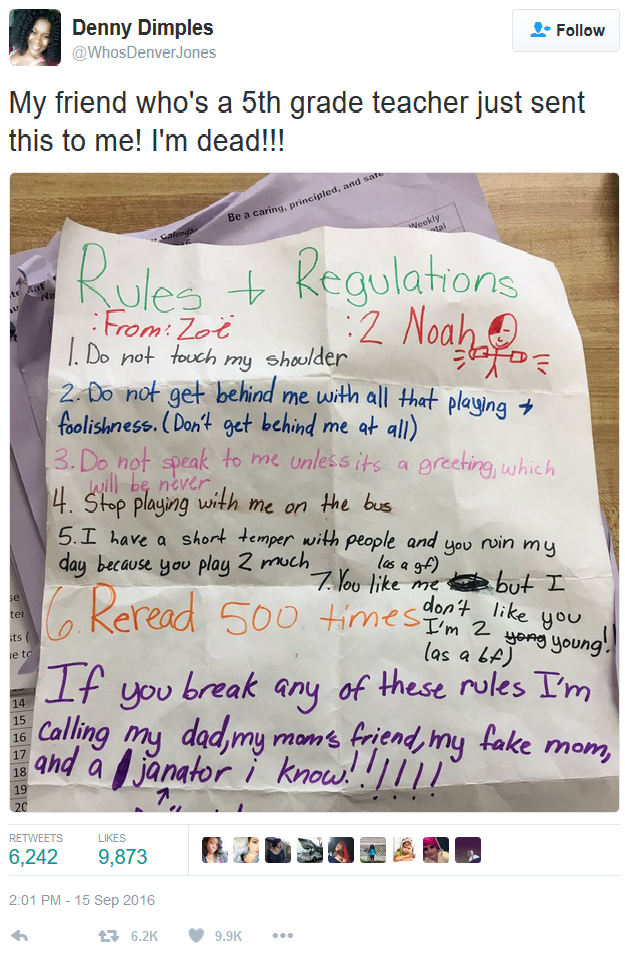 Denny Dimples
@WhosDenverJones
Follow
My friend who's a 5th grade teacher just sent
this to me! I'm dead!!!
Be a caring, principled, and safe
Calendar
Weekly
Rules + Regulations
:From: Zoë :2 Noah
1. Do not touch my shoulder
2. Do not get behind me with all that playing +
foolishness. (Don't get behind me at all)
3. Do not speak to me unless its a greeting, which
will be never
4. Stop playing with me on the bus
5. I have a short temper with people and you ruin my
day because you play 2 much
(as a gf)
7. You like me but I
don't like you
I'm 2 yong young!!
(as a bf)
6. Reread 500 times
If you break any of these rules I'm
calling my dad, my mom's friend, my fake mom,
and a janator i know!!!!!!!
14
15
16
17
18
19
20
RETWEETS LIKES
6,242 9,873
2:01 PM - 15 Sep 2016
6.2K 9.9K